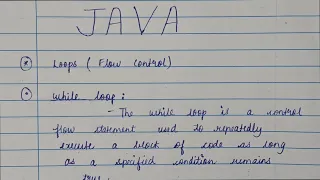 JAVA
Loops ( Flow Control)
While loop :
- The while loop is a control
flow statement used to repeatedly
execute a block of code as long
as a specified condition remains
true.